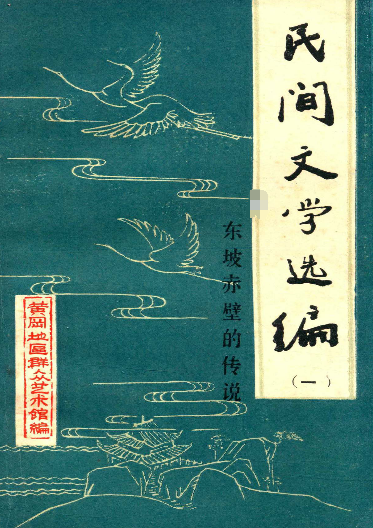 民间文学选编
（一）
东坡赤壁的传说
黄岡地區群众艺术館編